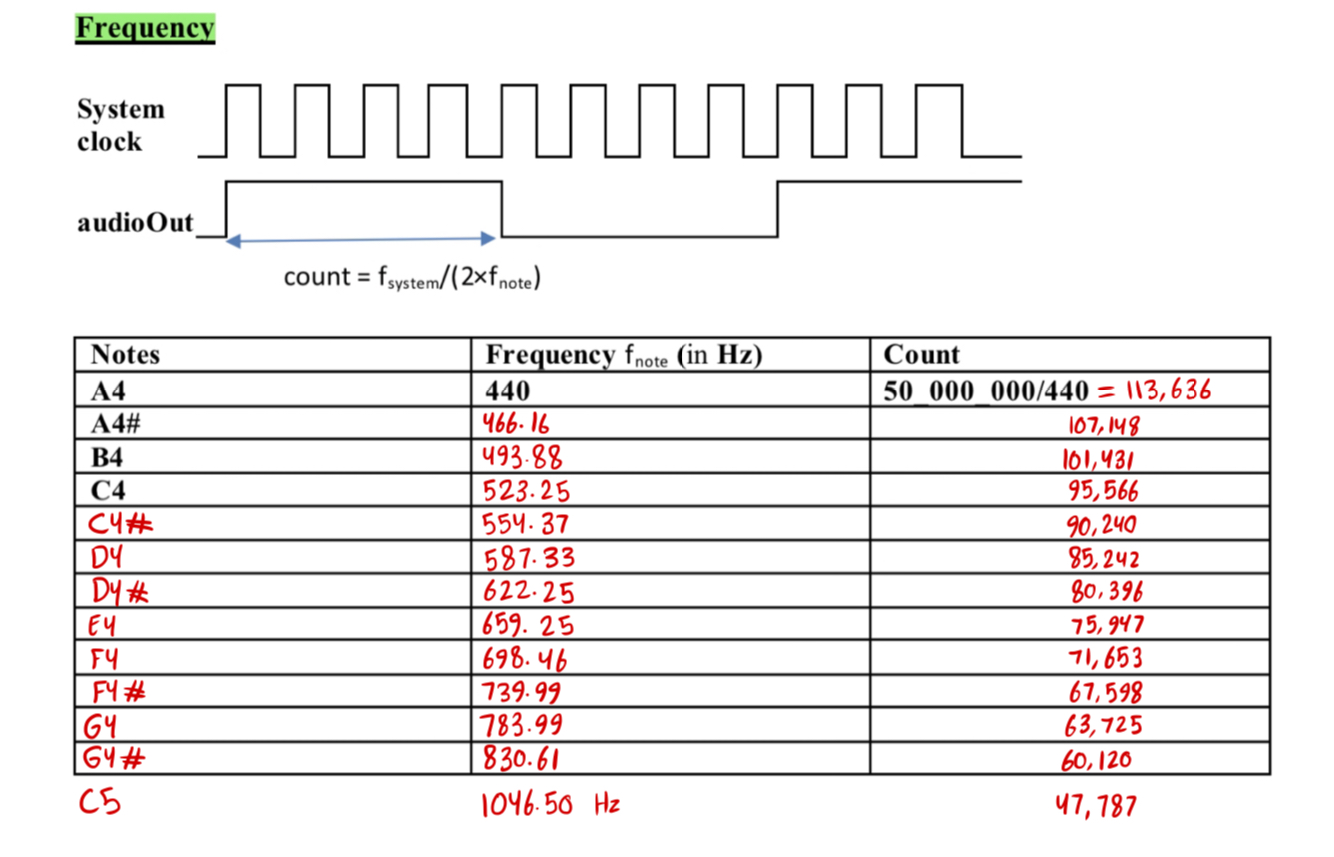 Frequency
System
clock
audioOut
count = fsystem/(2×fnote)
Notes Frequency fnote (in Hz) Count
A4 440 50_000_000/440 = 113,636
A4# 466.16 107,148
B4 493.88 101,431
C4 523.25 95,566
C4# 554.37 90,240
D4 587.33 85,242
D4# 622.25 80,396
E4 659.25 75,947
F4 698.46 71,653
F4# 739.99 67,598
G4 783.99 63,725
G4# 830.61 60,120
C5 1046.50 Hz 47,787